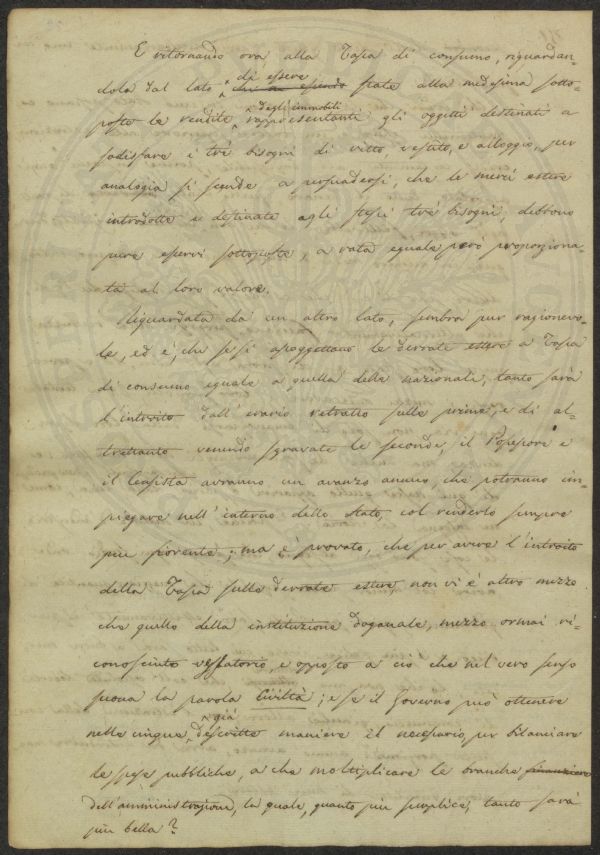 E ritornando ora alla Tassa di consumo, riguardan-
dola dal lato di essere state alla medesima sotto-
poste le rendite degli immobili rappresentanti gli oggetti destinati a
sodisfare i trè bisogni di vitto vestito, e alloggio, per
analogia si scende a persuadersi, che le merci estere
introdotte e destinate agli stessi trè bisogni, debbono
pure esservi sottoposte, a rata eguale però proporziona-
ta al loro valore.
Riguardata da un altro lato, sembra pur ragionevo-
le, ed è, che se si assoggettano le derrate estere a Tassa
di consumo eguale a quella delle nazionali, tanto sarà
l'introito dall'erario retratto sulle prime, e di al-
trettanto venendo sgravate le seconde, il Possessore e
il Censista avranno un avanzo annuo, che potranno im-
piegare nell'interno dello stato, col renderlo sempre
più fiorente; ma è provato, che per avere l'introito
della Tassa sulle derrate estere, non vi è altro mezzo
che quello della instituzione doganale, mezzo ormai ri-
conosciuto vessatorio, e opposto a ciò che nel vero senso
suona la parola Civiltà; e se il Governo può ottenere
nelle cinque già descritte maniere il necessario, per bilanciare
le spese pubbliche, a che moltiplicare le branche finanziere
dell'amministrazione, la quale, quanto più semplice, tanto sarà
più bella?